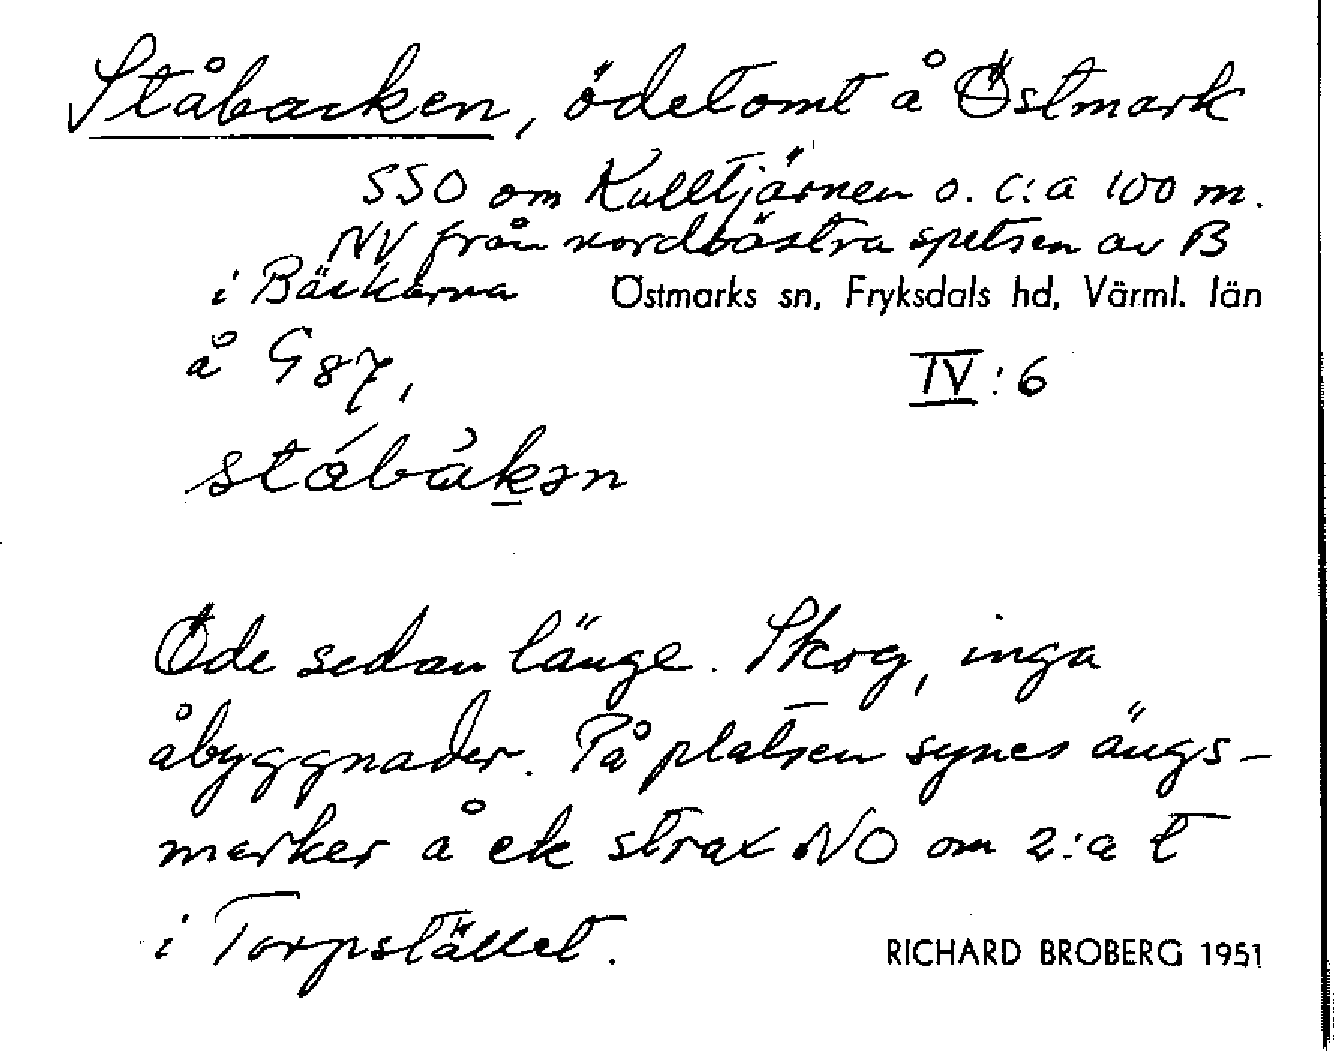 Ståbacken, ödetomt å Östmark
SSO om Kulltjärnen o. c:a 100 m.
NV från nordvästra spetsen av B
i Bäckarna Östmarks sn, Fryksdals hd, Värml. län
å G 87,
IV:6
stábàkən
Öde sedan länge. Skog, inga
åbyggnader. På platsen synes ängs-
marker å ek strax NO om 2:a t
i Torpstället.
RICHARD BROBERG 1951